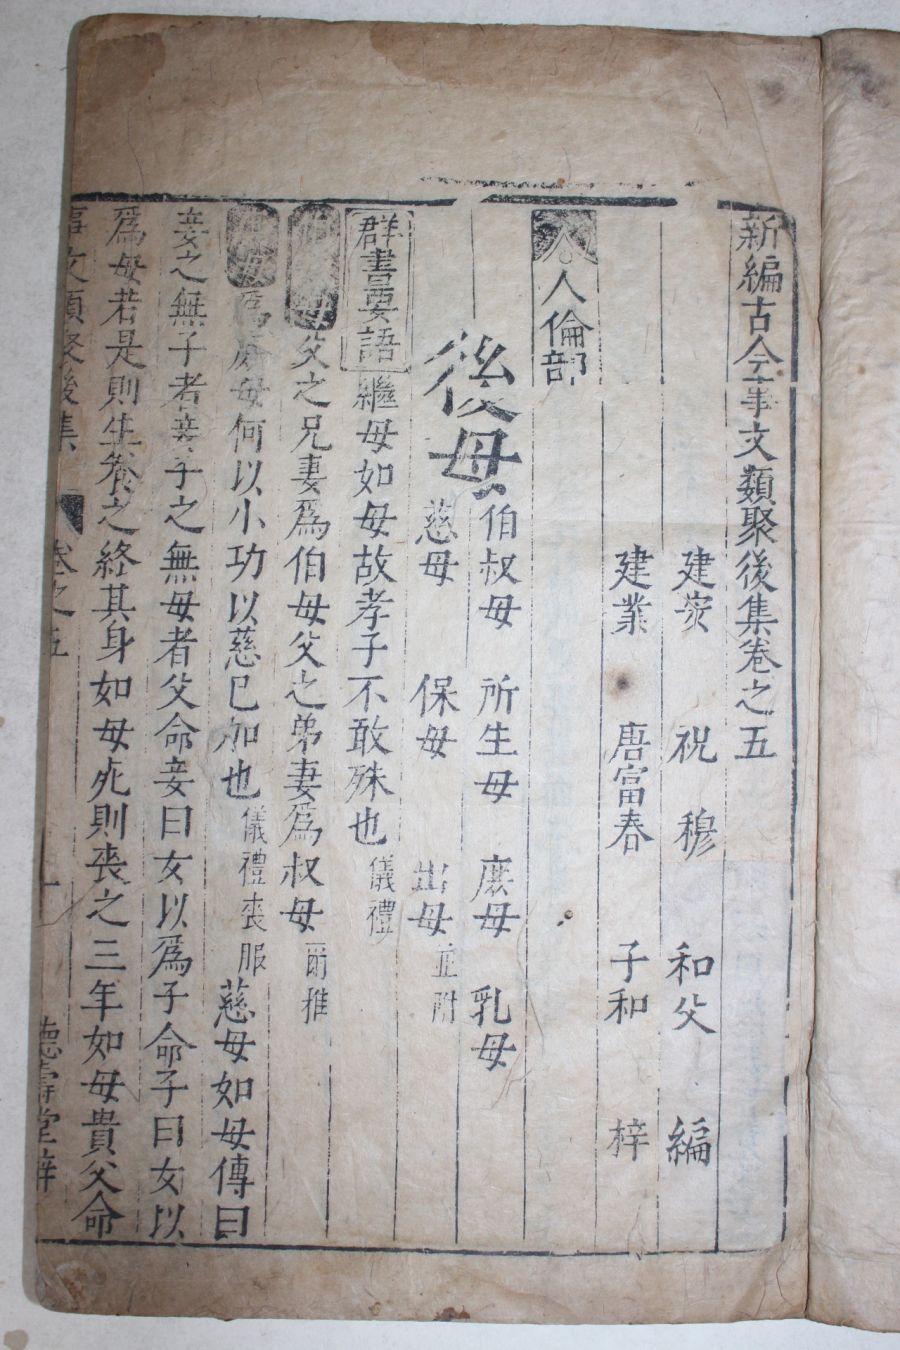 新編古今事文類聚後集卷之五
建安 祝 穆 和父 編
建業 唐富春 子和 梓
人倫部
後母 伯叔母 所生母 庶母 乳母
慈母 保母 出母 並附
群書要語 繼母如母故孝子不敢殊也 儀禮
父之兄妻爲伯母父之弟妻爲叔母 爾雅
爲庶母何以小功以慈已加也 儀禮喪服 慈母如母傳曰
妾之無子者妾子之無母者父命妾曰女以爲子命子曰女以
爲母若是則生養之終其身如母死則喪之三年如母貴父命
事文類聚後集 卷之五 德壽堂梓